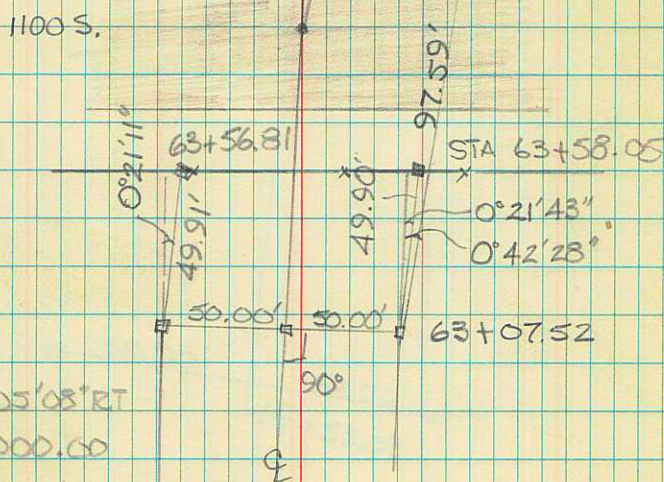 1100 S.
97.59'
0°21'11"
63+56.81
STA 63+58.05
49.91'
49.90'
0°21'43"
0°42'28"
50.00'
50.00'
63+07.52
90°
05'08" RT
000.00
℄